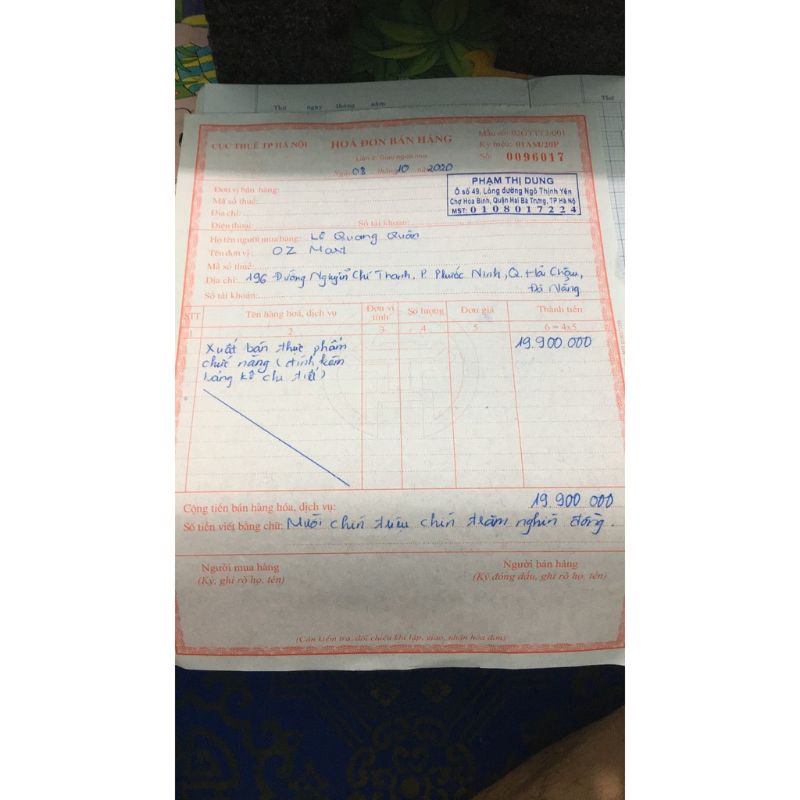 Thứ ngày tháng năm
Thứ
CỤC THUẾ TP HÀ NỘI
HOÁ ĐƠN BÁN HÀNG
Liên 2: Giao người mua
Ngày 08 tháng 10 năm 2020
Mẫu số: 02GTTT3/001
Ký hiệu: 01ASU20P
Số: 0096017
PHẠM THỊ DUNG
Ô số 49, Lòng đường Ngô Thịnh Yên
Chợ Hoà Bình, Quận Hai Bà Trưng, TP Hà Nộ
MST: 0108017224
Đơn vị bán hàng:
Mã số thuế:
Địa chỉ:
Điện thoại: Số tài khoản:
Họ tên người mua hàng: Lê Quang Quân
Tên đơn vị: OZ Mart
Mã số thuế:
Địa chỉ: 196 Đường Nguyễn Chí Thanh, P. Phước Ninh, Q. Hải Châu,
Đà Nẵng
Số tài khoản:
STT Tên hàng hoá, dịch vụ Đơn vị tính Số lượng Đơn giá Thành tiền
1 2 3 4 5 6 = 4x5
Xuất bán thực phẩm 19.900.000
chức năng (đính kèm
bảng kê chi tiết)
Cộng tiền bán hàng hóa, dịch vụ: 19.900 000
Số tiền viết bằng chữ: Mười chín triệu chín trăm nghìn đồng.
Người mua hàng Người bán hàng
(Ký, ghi rõ họ, tên) (Ký,đóng dấu, ghi rõ họ, tên)
(Cần kiểm tra, đối chiếu khi lập, giao, nhận hóa đơn)